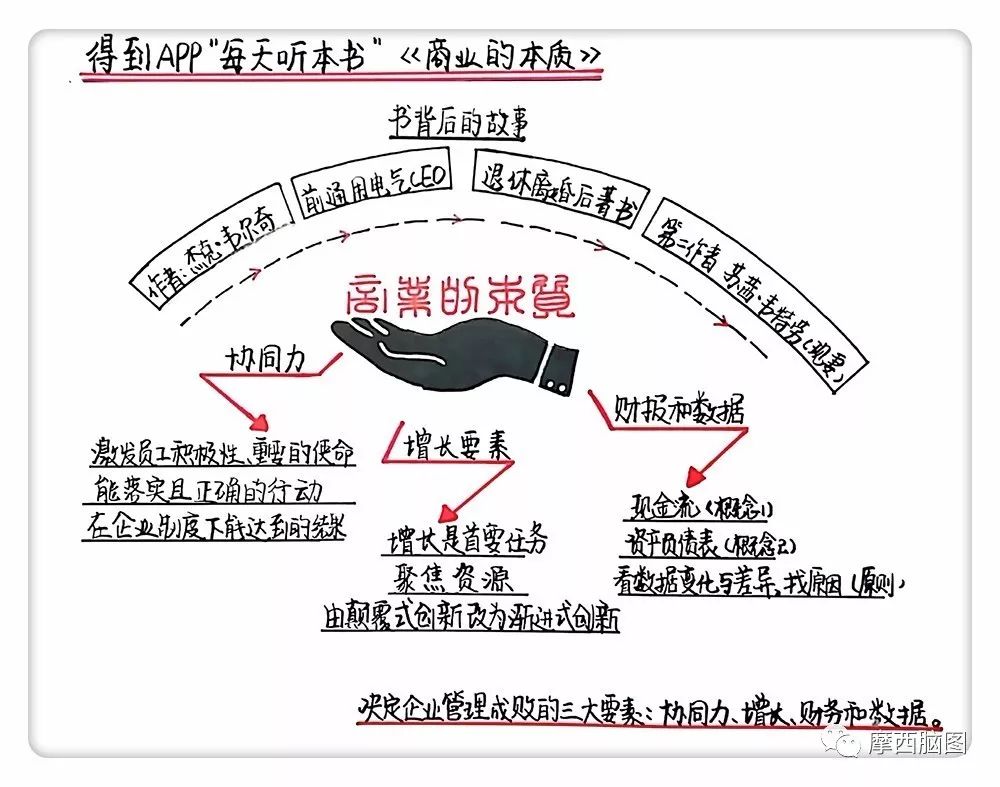 得到APP“每天听本书”《商业的本质》
书背后的故事
作者:杰克·韦尔奇
前通用电气CEO
退休离婚后著书
第二作者 苏茜·韦特劳(现妻)
商業的本質
协同力
激发员工积极性、重要的使命
能落实且正确的行动
在企业制度下能达到的结果
增长要素
增长是首要任务
聚焦资源
由颠覆式创新改为渐进式创新
财报和数据
现金流(概念1)
资产负债表(概念2)
看数据变化与差异,找原因(原则)
决定企业管理成败的三大要素:协同力、增长、财务和数据。
摩西脑图